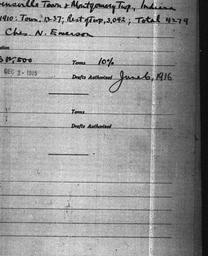 Town & Montgomery Twp., Indiana
1910: Town, 1237; Rest of Twp, 3,042; Total 4279
Chas. N. Emerson
Terms 10%
DEC 2-
Drafts Authorized June 6, 1916
Terms
Drafts Authorized